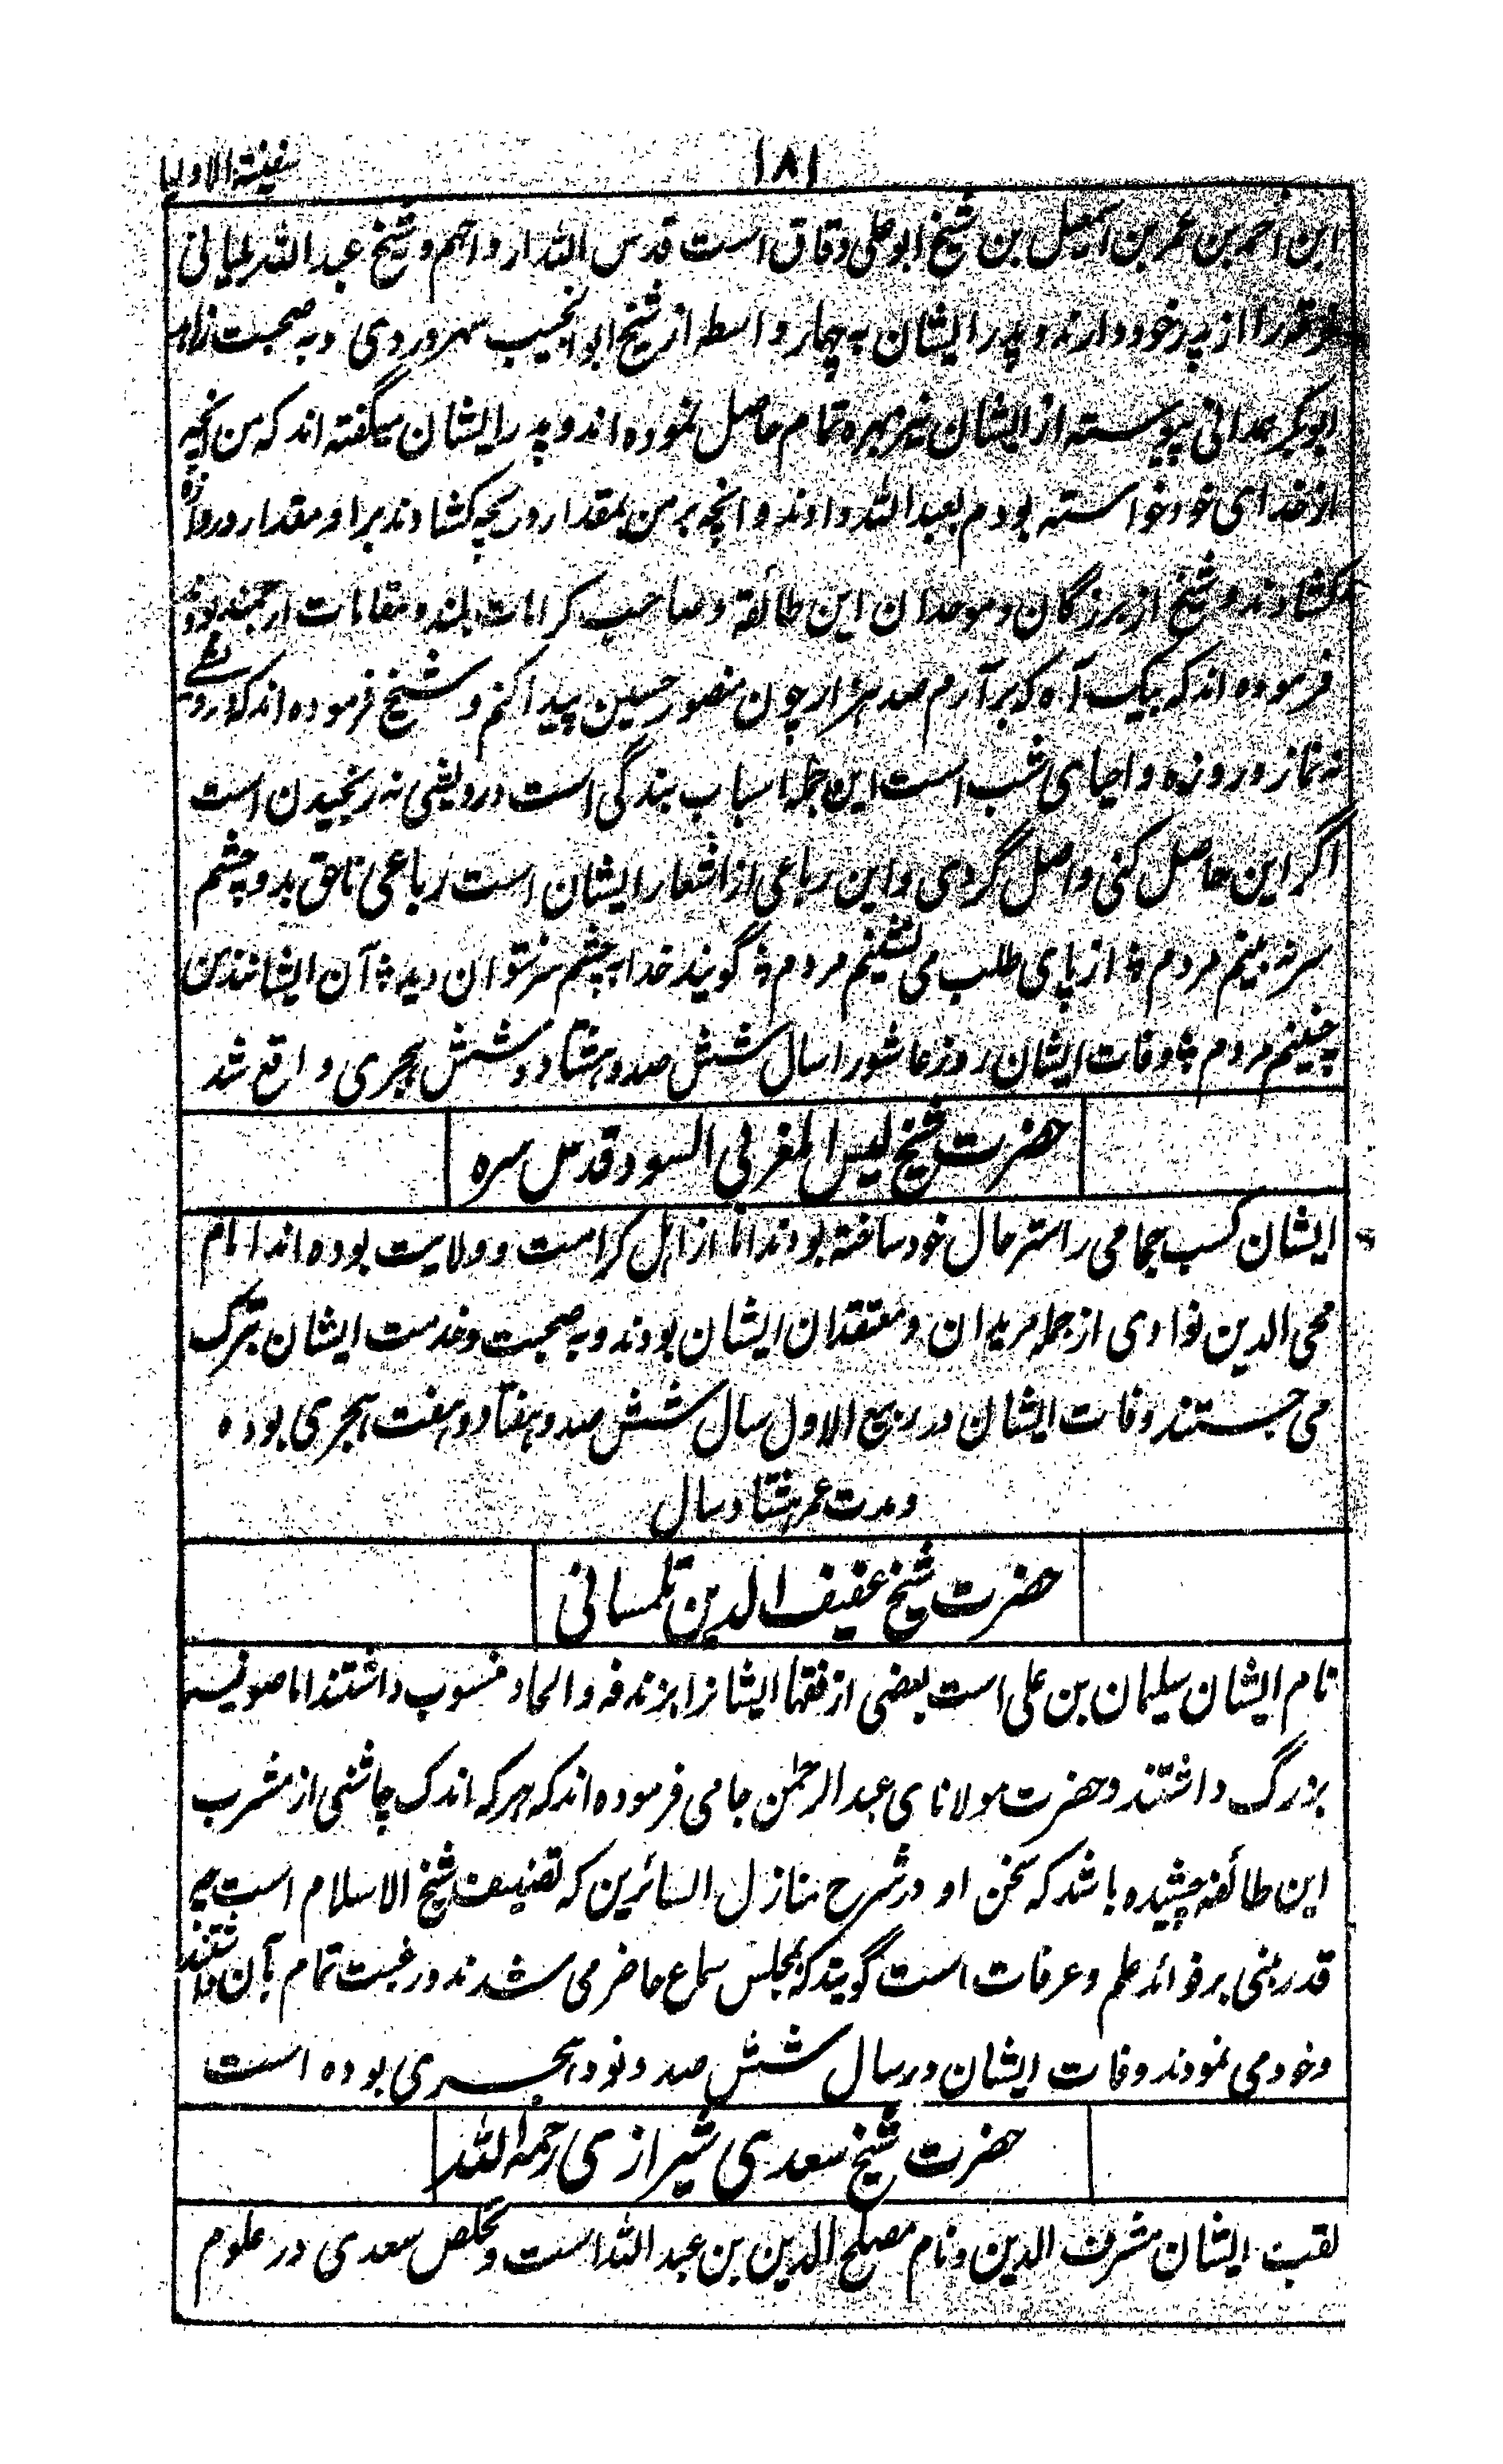 سفینة الاولیا
۱۸۱
ابن احمد بن عمر بن اسمعیل بن شیخ ابو علی دقاق است قدس الله ارواحهم و شیخ عبد الله بلیانی
خرقه را از پدر خود دارند و پدر ایشان به چهار واسطه از شیخ ابو النجیب سهروردی و به صحبت زاهد
ابوبکر همدانی پیوسته از ایشان نیز بهره تمام حاصل نموده اند و پدر ایشان میگفته اند که من آنچه
از خدای خود خواسته بودم بعبد الله دادند و انچه بر من بمقدار دریچه کشادند بر او مقدار دروازه
کشادند و شیخ از بزرگان و موحدان این طائفة و صاحب کرامات بلند و مقامات ارجمند بوده
فرموده اند که بیک آه که بر آرم صد هزار چون منصور حسین پیدا کنم و شیخ فرموده اند که درویشی
نه نماز و روزه و احیای شب است این جمله اسباب بندگی است درویشی نه رنجیدن است
اگر این حاصل کنی واصل گردی و این رباعی از اشعار ایشان است رباعی تا حق بدو چشم
سر نه بینم مردم ؞ از پای طلب می ننشینم مردم ؞ گویند خدا بچشم سر نتوان دید ؞ آن ایشانند من
چنینم مردم ؞ وفات ایشان روز عاشورا سال شش صد و هشتاد و شش هجری واقع شد
حضرت شیخ لیس المغربی السود قدس سره
ایشان کسب حجامی را ستر حال خود ساخته بودند اما از اهل کرامت و ولایت بوده اند امام
محی الدین نواوی از جمله مریدان و معتقدان ایشان بودند و به صحبت و خدمت ایشان تبرک
می جستند وفات ایشان در ربیع الاول سال شش صد و هفتاد و هفت هجری بوده
و مدت عمر هشتاد سال
حضرت شیخ عفیف الدین تلمسانی
نام ایشان سلیمان بن علی است بعضی از فقها ایشانرا بزندقه و الحاد منسوب داشتند اما صوفیه
بزرگ داشتند و حضرت مولانای عبد الرحمن جامی فرموده اند که هر که اندک چاشنی از مشرب
این طائفه چشیده باشد که سخن او در شرح منازل السائرین که تصنیف شیخ الاسلام است چه
قدر مبنی بر فوائد علم و عرفات است گویند که بمجلس سماع حاضر می شدند و رغبت تمام بآن داشتند
و خود می نمودند وفات ایشان در سال شش صد و نود هجری بوده است
حضرت شیخ سعدی شیرازی رحمه الله
لقب ایشان مشرف الدین و نام مصلح الدین بن عبد الله است و تخلص سعدی در علوم